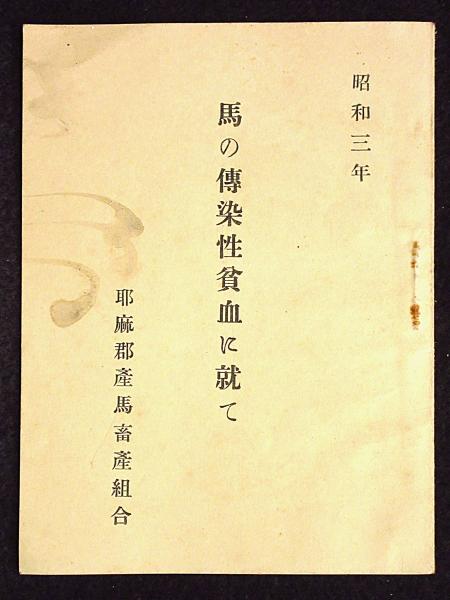 昭和三年
馬の傳染性貧血に就て
耶麻郡產馬畜產組合